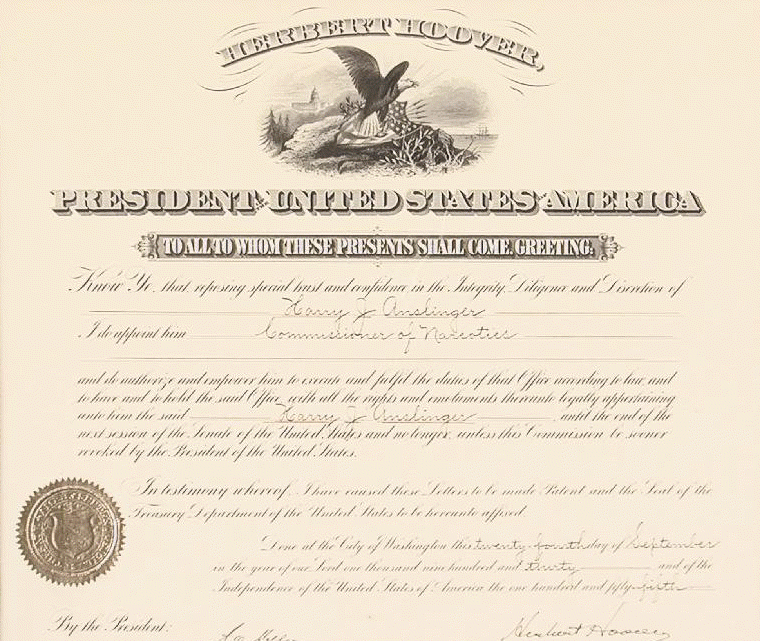 HERBERT HOOVER,
PRESIDENT OF THE UNITED STATES OF AMERICA
TO ALL TO WHOM THESE PRESENTS SHALL COME, GREETING:
Know Ye, that reposing special trust and confidence in the Integrity, Diligence and Discretion of
Harry J. Anslinger
I do appoint him Commissioner of Narcotics
and do authorize and empower him to execute and fulfil the duties of that Office according to law, and
to have and to hold the said Office, with all the rights and emoluments thereunto legally appertaining
unto him the said Harry J. Anslinger, until the end of the
next session of the Senate of the United States and no longer, unless this Commission be sooner
revoked by the President of the United States.
In testimony whereof, I have caused these Letters to be made Patent and the Seal of the
Treasury Department of the United States to be hereunto affixed.
Done at the City of Washington this twenty-fourth day of September
in the year of our Lord one thousand nine hundred and thirty and of the
Independence of the United States of America the one hundred and fifty-fifth
By the President:
Herbert Hoover